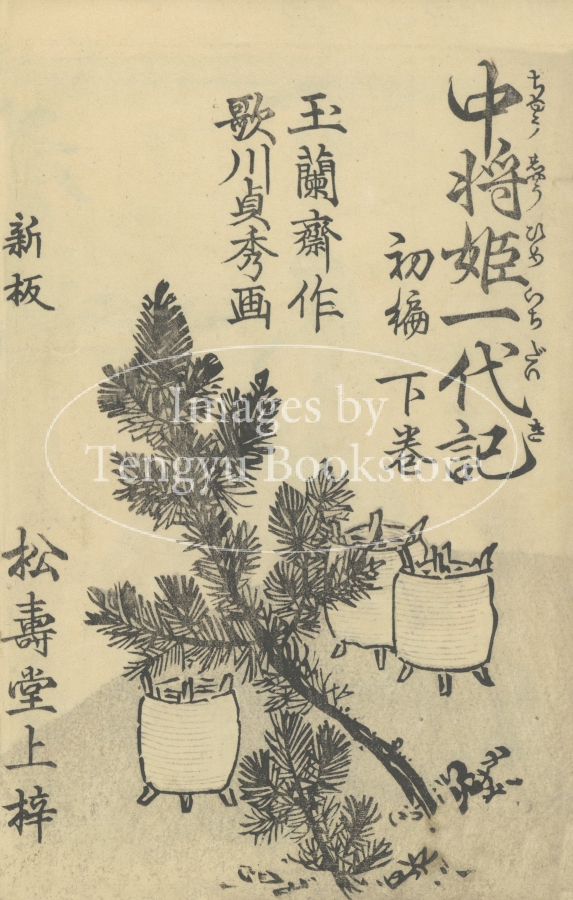 中将姫一代記
ちゆうしやうひめいちだいき
初編
下巻
玉蘭齋作
歌川貞秀画
新板
松壽堂上梓
Images by
Tengyu Bookstore